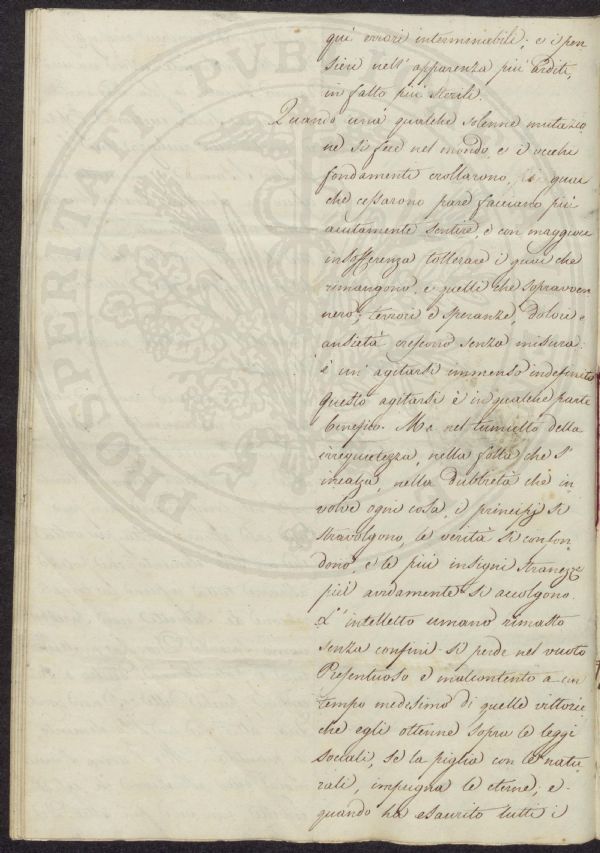 qui errori interminabili; e i pen
sieri nell'apparenza più arditi,
in fatto più sterili.
Quando una qualche solenne mutazio
ne si fece nel mondo, e i vecchi
fondamenti crollarono, i guai
che cessarono pare facciano più
acutamente sentire, e con maggiore
insofferenza tollerare i guai che
rimangono, e quelli che sopravven
nero; terrori e speranze, dolori e
ansietà crescono senza misura:
è un agitarsi immenso indefinito
questo agitarsi è in qualche parte
benefico. Ma nel tumulto della
irrequietezza, nella folla che s'
incalza, nella dubbietà che in
volve ogni cosa, i principj si
stravolgono, le verità si confon
dono, e le più insigni stranezze
più avidamente si accolgono.
L'intelletto umano rimasto
senza confini si perde nel vuoto
Presentuoso e malcontento a un
tempo medesimo di quelle vittorie
che egli ottenne sopra le leggi
sociali, se la piglia con le natu
rali, impugna le eterne; e
quando ha esaurito tutti i
PROSPERITATI PVBLICAE